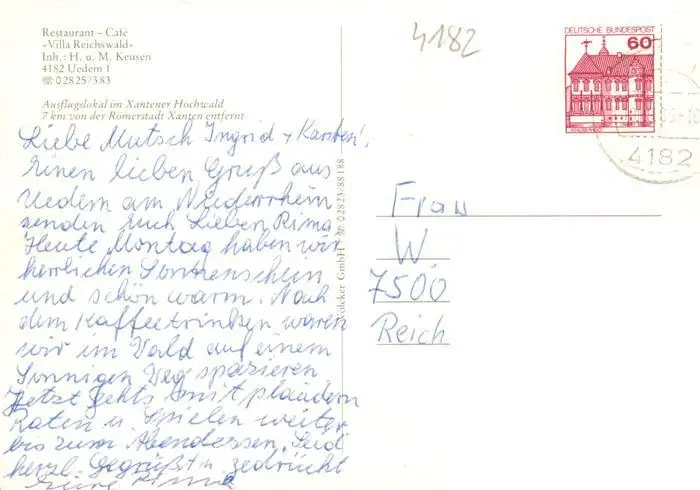 Restaurant – Café
»Villa Reichswald«
Inh.: H. u. M. Keusen
4182 Uedem 1
☎ 02825/383
Ausflugslokal im Xantener Hochwald
7 km von der Römerstadt Xanten entfernt
4182
DEUTSCHE BUNDESPOST
60
4182
Liebe Mutsch Ingrid + Karsten!
Einen lieben Gruß aus
Uedem am Niederrhein
senden Euch Lieben Rima
Heute Montag haben wir
herrlichen Sonnenschein
und schön warm. Nach
dem Kaffeetrinken waren
wir im Wald auf einem
Sonnigen Weg spazieren
Jetzt gehts mit plaudern
Raten u. Spielen weiter
bis zum Abendessen. Seid
herzl. Gegrüßt u. gedrückt
Eure
Völcker GmbH ☎ 02823/88188
Frau
W
7500
Reich